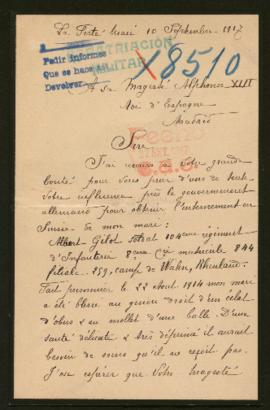 La Ferté Macé 10 Septembre 1917
REPATRIACION
MILITAR
Pedir informes
Que se haga
Devolver
18510
A Sa Majesté Alphonse XIII
Roi d'Espagne
Madrid
Sire
J'ai recours à votre grande
bonté pour vous prier d'user de toute
votre influence près le gouvernement
allemand pour obtenir l'internement en
Suisse de mon mari:
Albert Gilot soldat 104eme régiment
d'Infanterie 8eme Cie matricule 844
camp de Wahn, Rheinland.
Fait prisonnier le 22 Aout 1914 mon mari
a été blessé au genou droit d'un éclat
d'obus & au mollet d'une balle. D'une
santé délicate & très déprimé il aurait
besoin de soins qu'il ne reçoit pas.
J'ose espérer que Votre Majesté